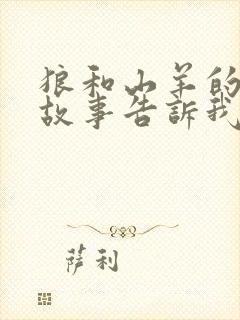 狼和山羊的
故事告訴我
萨利